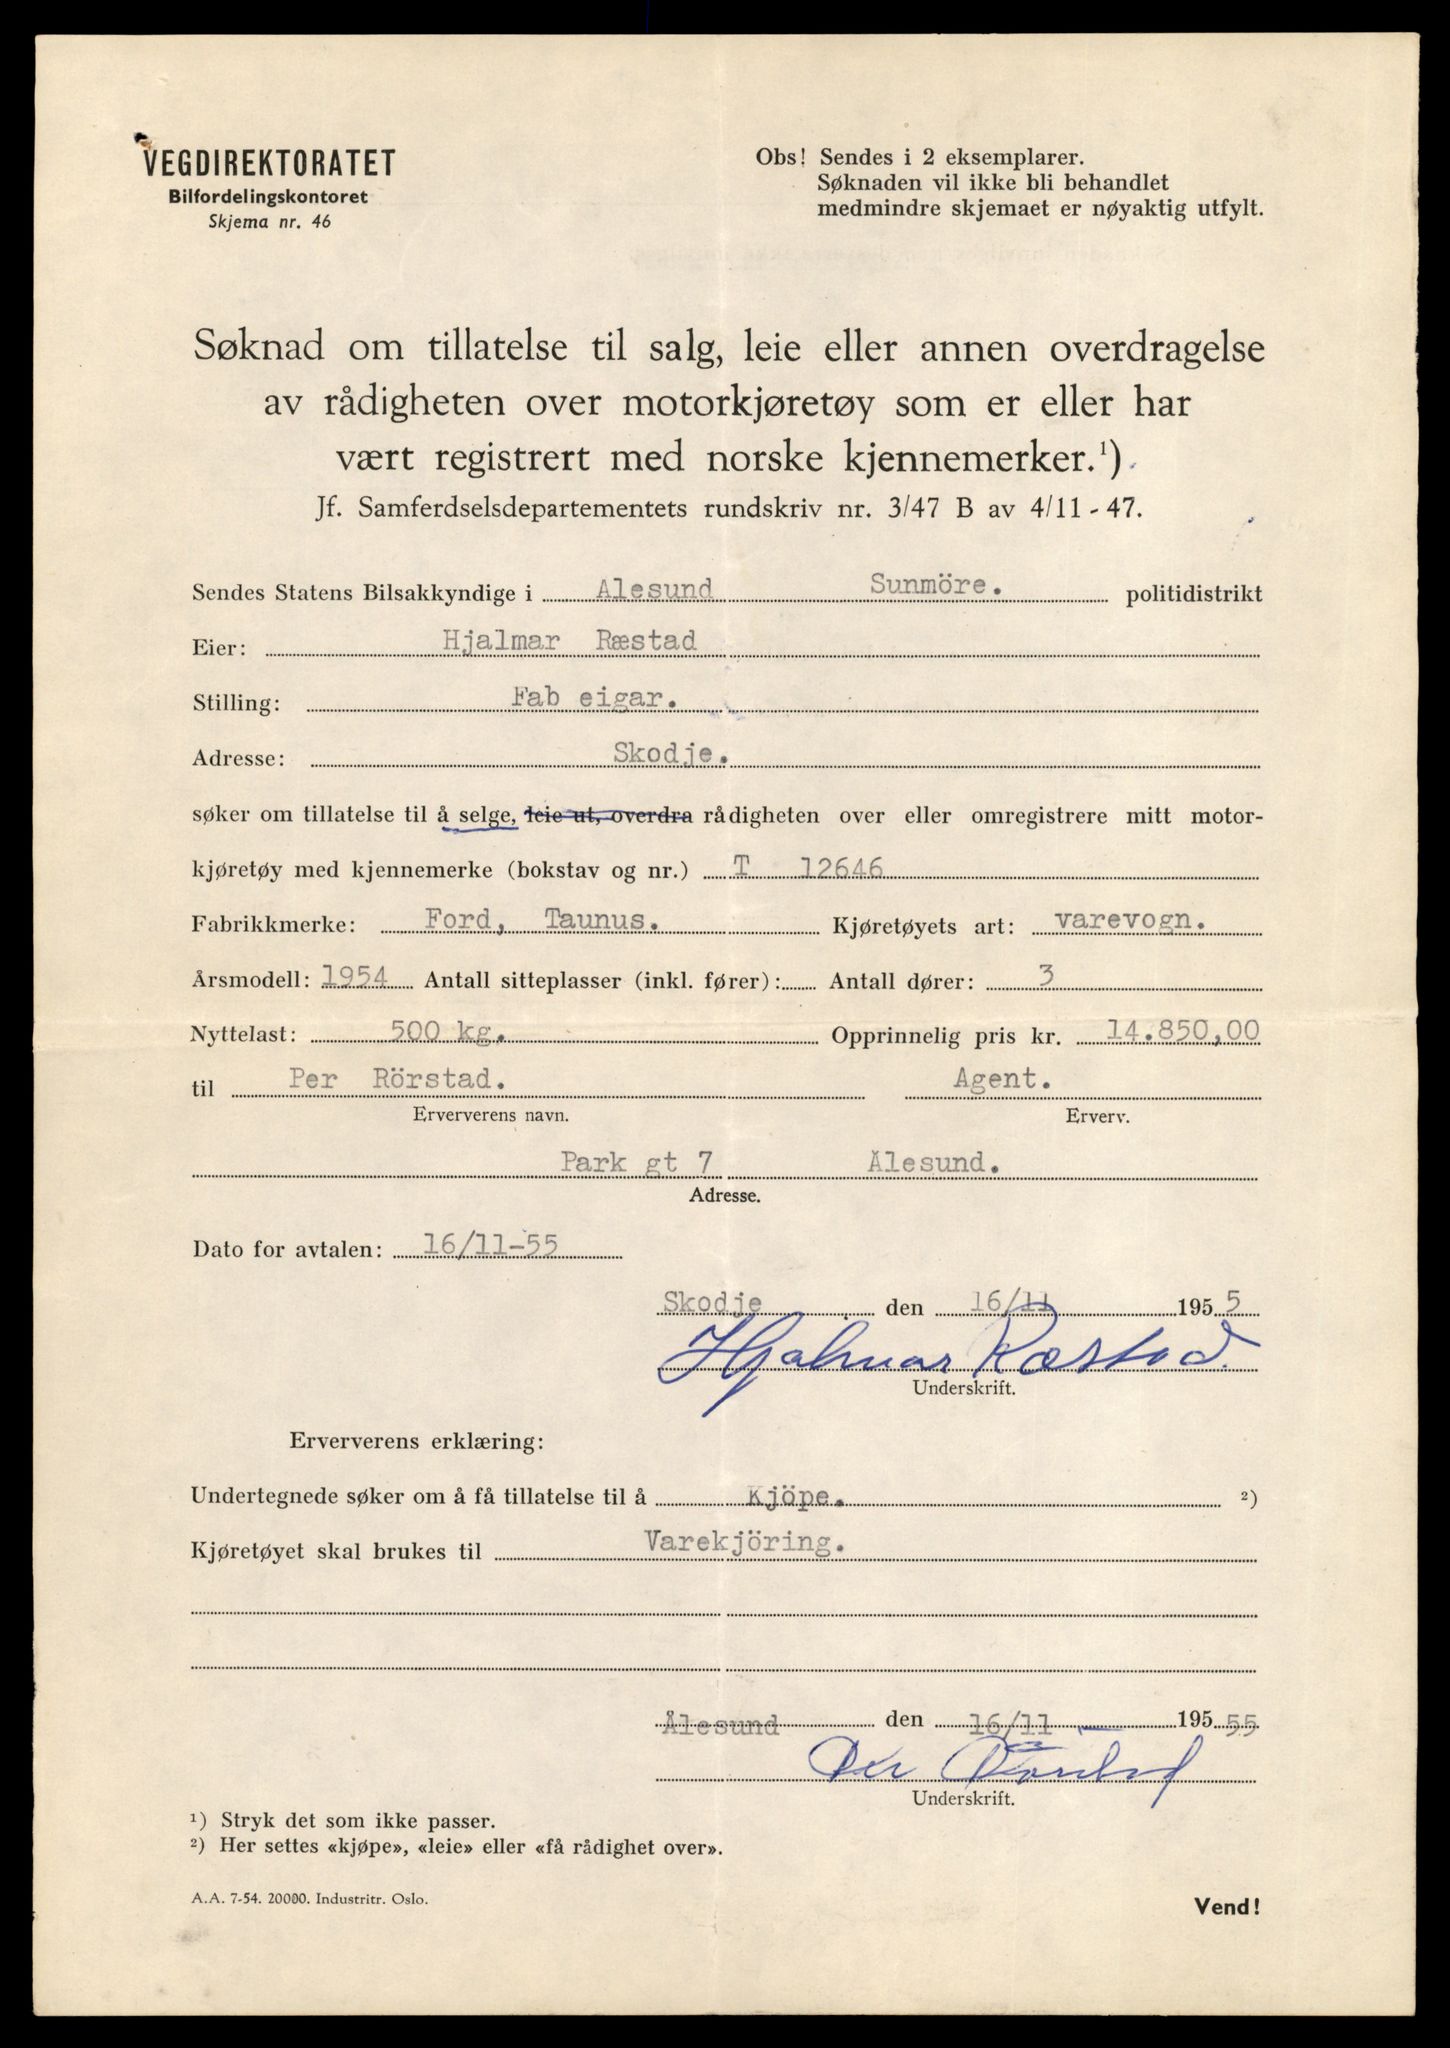 VEGDIREKTORATET
Bilfordelingskontoret
Skjema nr. 46
Obs! Sendes i 2 eksemplarer.
Søknaden vil ikke bli behandlet
medmindre skjemaet er nøyaktig utfylt.
Søknad om tillatelse til salg, leie eller annen overdragelse
av rådigheten over motorkjøretøy som er eller har
vært registrert med norske kjennemerker.¹)
Jf. Samferdselsdepartementets rundskriv nr. 3/47 B av 4/11 - 47.
Sendes Statens Bilsakkyndige i Alesund Sunmöre. politidistrikt
Eier: Hjalmar Ræstad
Stilling: Fab eigar.
Adresse: Skodje.
søker om tillatelse til å selge, leie ut, overdra rådigheten over eller omregistrere mitt motor-
kjøretøy med kjennemerke (bokstav og nr.) T 12646
Fabrikkmerke: Ford, Taunus. Kjøretøyets art: varevogn.
Årsmodell: 1954 Antall sitteplasser (inkl. fører): Antall dører: 3
Nyttelast: 500 kg. Opprinnelig pris kr. 14.850,00
til Per Rörstad. Agent.
Erververens navn. Erverv.
Park gt 7 Ålesund.
Adresse.
Dato for avtalen: 16/11-55
Skodje den 16/11 195 5
Hjalmar Ræstad.
Underskrift.
Erververens erklæring:
Undertegnede søker om å få tillatelse til å Kjöpe. ²)
Kjøretøyet skal brukes til Varekjöring.
Ålesund den 16/11 - 195 55
Per Rörstad
Underskrift.
¹) Stryk det som ikke passer.
²) Her settes «kjøpe», «leie» eller «få rådighet over».
A.A. 7-54. 20000. Industritr. Oslo.
Vend!